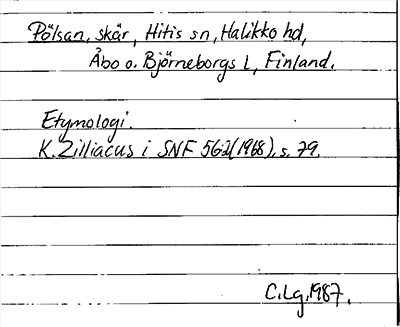 Pölsan, skär, Hitis sn, Halikko hd,
Åbo o. Björneborgs l, Finland.
Etymologi.
K. Zilliacus i SNF 56:2(1968), s. 79.
C.Lg.1987.